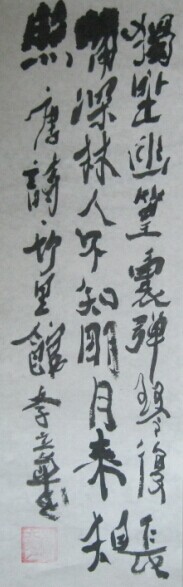 獨坐幽篁裏彈琴復長
嘯深林人不知明月來相
照 唐詩竹里館 李